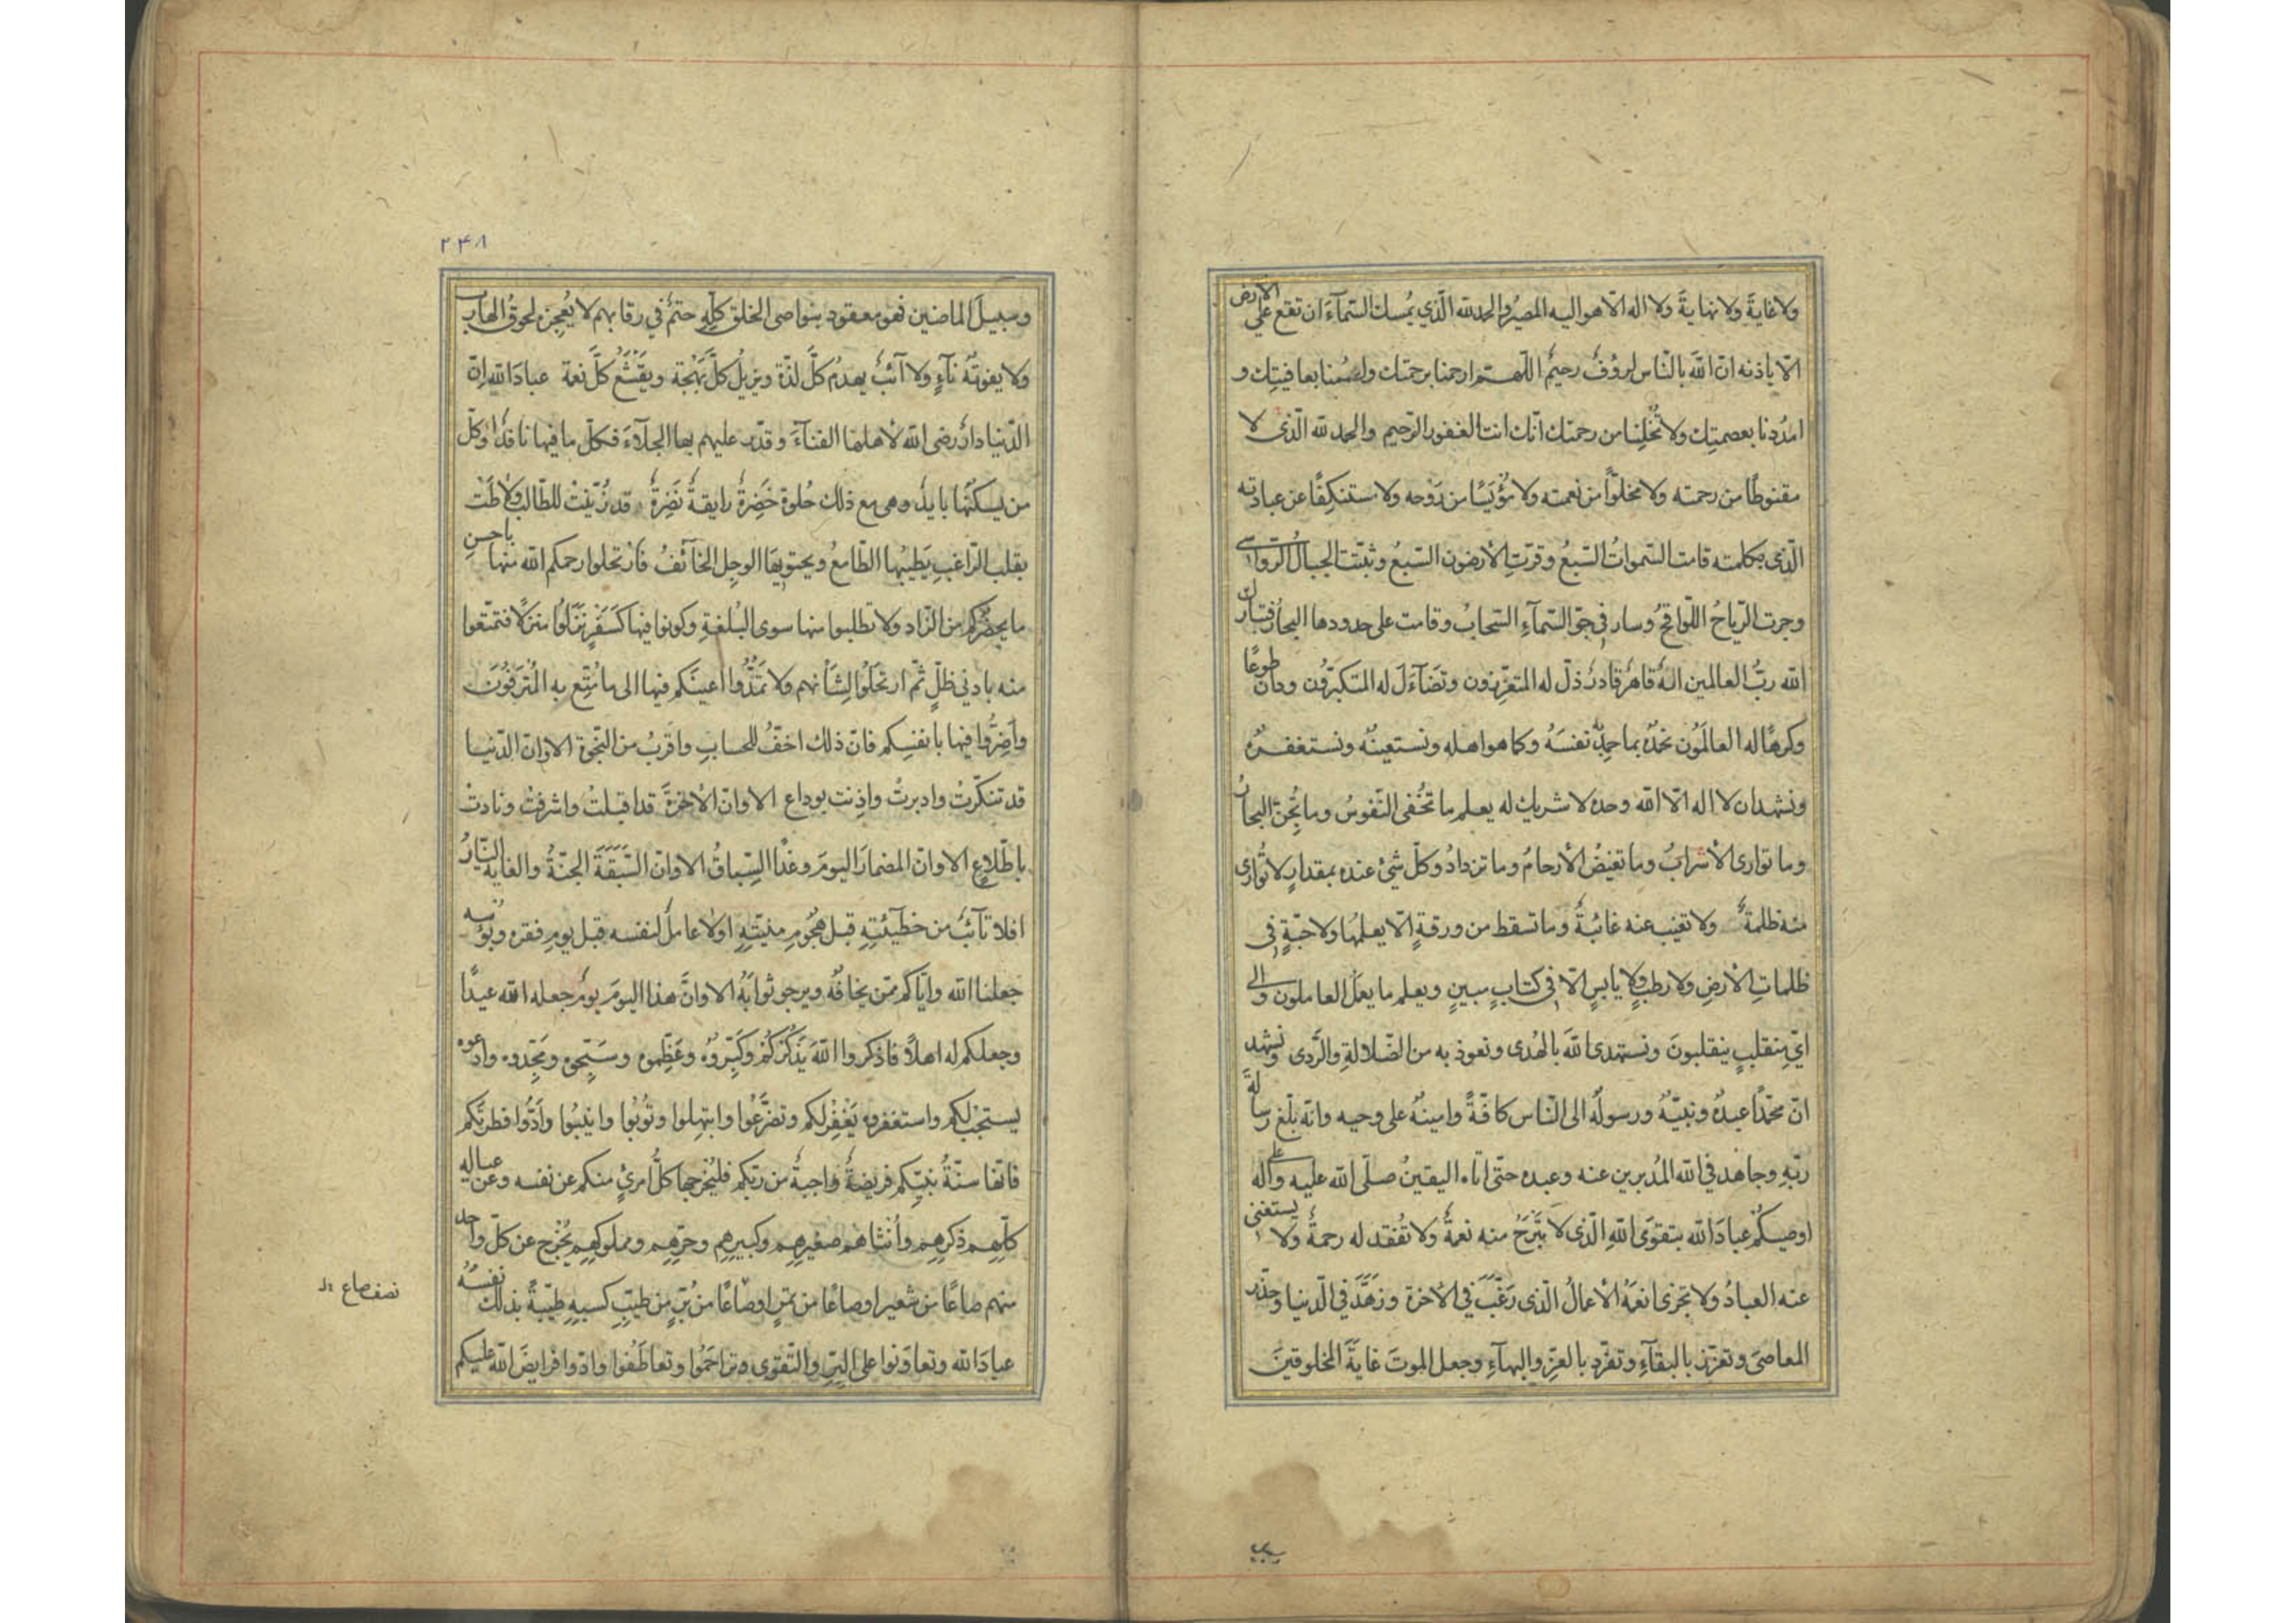 ولا غايةَ ولا نهايةَ ولا اله الّا هو اليه المصيرُ والحمد لله الّذي يُمسك السّمآءَ ان تقع على الارض
الّا باذنه انّ اللهَ بالنّاس لرؤفٌ رحيمٌ اللّهمّ ارحمنا برحمتك واعصمنا بعافيتِك و
امدُدنا بعصمتِك ولا تُخلِنا من رحمتك انّك انت الغفور الرّحيم والحمد لله الّذى لا
مقنوطًا من رحمته ولا مخلوًّا من نعمته ولا مُؤْيَسًا من رَوْحه ولا مستنكِفًا عن عبادته
الّذى بكلمته قامت السّمواتُ السّبعُ وقرّتِ الأرضون السّبعُ وثبّتت الجبالُ الرّواسى
وجرت الرّياحُ اللّواقحُ وسار فى جوّ السّمآءِ السّحابُ وقامت على حدودها البحارُ فتبارك
الله ربُّ العالمين الهٌ قاهرٌ قادرٌ ذلّ له المتعزّزون وتضآءَلَ له المتكبّرون ودان طوعًا
وكرهًا له العالَمُون نحمدُه بما حمِدَ به نفسَهُ وكما هو اهله ونستعينُه ونستغفرُه
ونشهد ان لا اله الّا الله وحده لا شريك له يعلم ما تُخفى النّفوسُ وما تُجِنّ البحارُ
وما توارى الأسرابُ وما تغيضُ الأرحامُ وما تزدادُ وكلّ شئ عنده بمقدارٍ لا تُوارى
منه ظلمةٌ ولا تغيب عنه غائبةٌ وما تسقط من ورقةٍ الّا يعلمُها ولا حبّةٍ فى
ظلماتِ الأرضِ ولا رطبٍ ولا يابسٍ الّا فى كتابٍ مبينٍ ويعلم ما يعمَل العاملون والى
اىّ منقلبٍ ينقلبونَ ونستهدى اللهَ بالهُدى ونعوذ به من الضّلالةِ والرَّدى ونشهد
انّ محمّدًا عبدُه ونبيّهُ ورسولُه الى النّاس كافّةً وامينُه على وحيه وانّه بلّغ رسالةَ
ربّهِ وجاهد في الله المُدبرين عنه وعبده حتّى اتاه اليقينُ صلّى الله عليه وعلى آله
اوصيكُم عبادَ الله بتقوَى اللهِ الّذى لا تبرَحُ منه نعمةٌ ولا تُفقد له رحمةٌ ولا يستغنى
عنه العبادُ ولا تجزى انعمَهُ الأعمالُ الّذى رَغَّبَ في الأخرة وزهَّدَ في الدّنيا وحذّر
المعاصىَ وتعزّز بالبقآءِ وتفرّد بالعزِّ والبهآءِ وجعل الموتَ غايةَ المخلوقينَ
وسبيل
۲۴۸
وسبيلَ الماضين فهو معقود بنواصى الخلق كلّهِ حتمٌ في رقابهم لا يُعجِزه لحوقُ الهارب
ولا يفوتُه نآءٍ ولا آئبٌ يهدمُ كلَّ لذّة ويزيلُ كلَّ بهجة ويقشَعُ كلَّ نعمة عبادَ الله انّ
الدّنيا دارٌ رضى الله لأهلها الفنآءَ وقدّر عليهم بها الجلآءَ فكلّ ما فيها نافدٌ وكلّ
من يسكنُها بايدٌ وهى مع ذلك حُلوةٌ خَضِرةٌ رايقةٌ نَضِرةٌ قد زُيّنتْ للطّالب ولاطَتْ
بقلب الرّاغب يَطِّبيها الطّامعُ ويجتويها الوجِل الخآئفُ فارتحلوا رحمكم الله منها باحسنِ
ما يحضُركم من الزّاد ولا تطلبوا منها سوى البُلغةِ وكونوا فيها كسَفْرٍ نزَلُوا منزلًا فتمتّعوا
منه بادنى ظلٍّ ثمّ ارتحَلُوا لِشَأْنهم ولا تمَدُّوا اعينَكم فيها الى ما مُتّع به المُترَفُونَ
واَضِرُّوا فيها بانفسِكم فانّ ذلك اخفُّ للحسابِ واقربُ من النّجوة الا وانّ الدّنيا
قد تنكّرتْ وادبرتْ واذِنت بوداع الا وانّ الأخرَةَ قد اقبلتْ واشرفتْ ونادتْ
باطّلاعٍ الا وانّ المضمارَ اليومَ وغدًا السِّباقُ الا وانّ السَّبَقَةَ الجنّةُ والغاية النّارُ
افلا تآئبٌ من خطيئتِهِ قبل هجُومِ منيّتِهِ اولا عاملٌ لنفسه قبل يومِ فقره وبؤسه
جعلنا الله وايّاكم ممّن يخافُه ويرجو ثوابَهُ الا وانَّ هذا اليومَ يومٌ جعله الله عيدًا
وجعلكم له اهلًا فاذكروا اللهَ يَذكُركُم وكَبّروُه وعَظِّموه وسَبّحوه ومَجّدوه وادعوه
يستجبْ لكم واستغفروه يَغْفِرْ لكم وتضرَّعُوا وابتهِلوا وتُوبُوا وانيبُوا واَدُّوا فطرتَكم
فانّها سنّةُ نبيّكم فريضةٌ واجبةٌ من ربّكم فليُخرجها كلُّ امرئٍ منكم عن نفسه وعن عياله
كلّهِم ذكرِهم وأُنثاهم صغيرِهم وكبيرِهم وحرّهِم ومملوكهِم يُخرج عن كلّ واحد
منهم صاعًا من شعير او صاعًا من تمرٍ او صاعًا من بُرٍّ من طيّبِ كسبهِ طيّبةً بذلك نفسُه
عبادَ الله وتعاوَنوا على البِرّ والتّقوى وتراحَمُوا وتعاطَفُوا وادّوا فرايضَ الله عليكم
نصف صاع